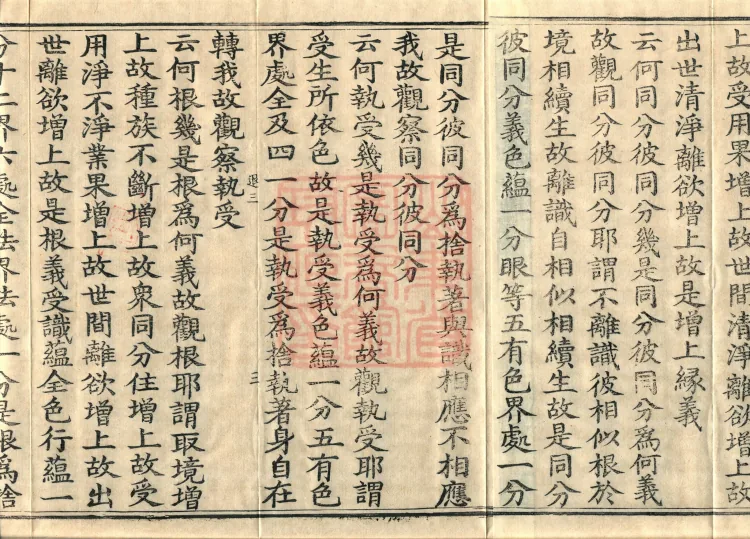 上故受用果增上故世間清淨離欲增上故
出世清淨離欲增上故是增上緣義
云何同分彼同分幾是同分彼同分為何義
故觀同分彼同分耶謂不離識彼相似根於
境相續生故離識自相似相續生故是同分
彼同分義色蘊一分眼等五有色界處一分
是同分彼同分為捨執著與識相應不相應
我故觀察同分彼同分
云何執受幾是執受為何義故觀執受耶謂
受生所依色故是執受義色蘊一分五有色
界處全及四一分是執受為捨執著身自在
轉我故觀察執受
退三
三
云何根幾是根為何義故觀根耶謂取境增
上故種族不斷增上故衆同分住增上故受
用淨不淨業果增上故世間離欲增上故出
世離欲增上故是根義受識蘊全色行蘊一
分十二界六處全法界法處一分是根為捨